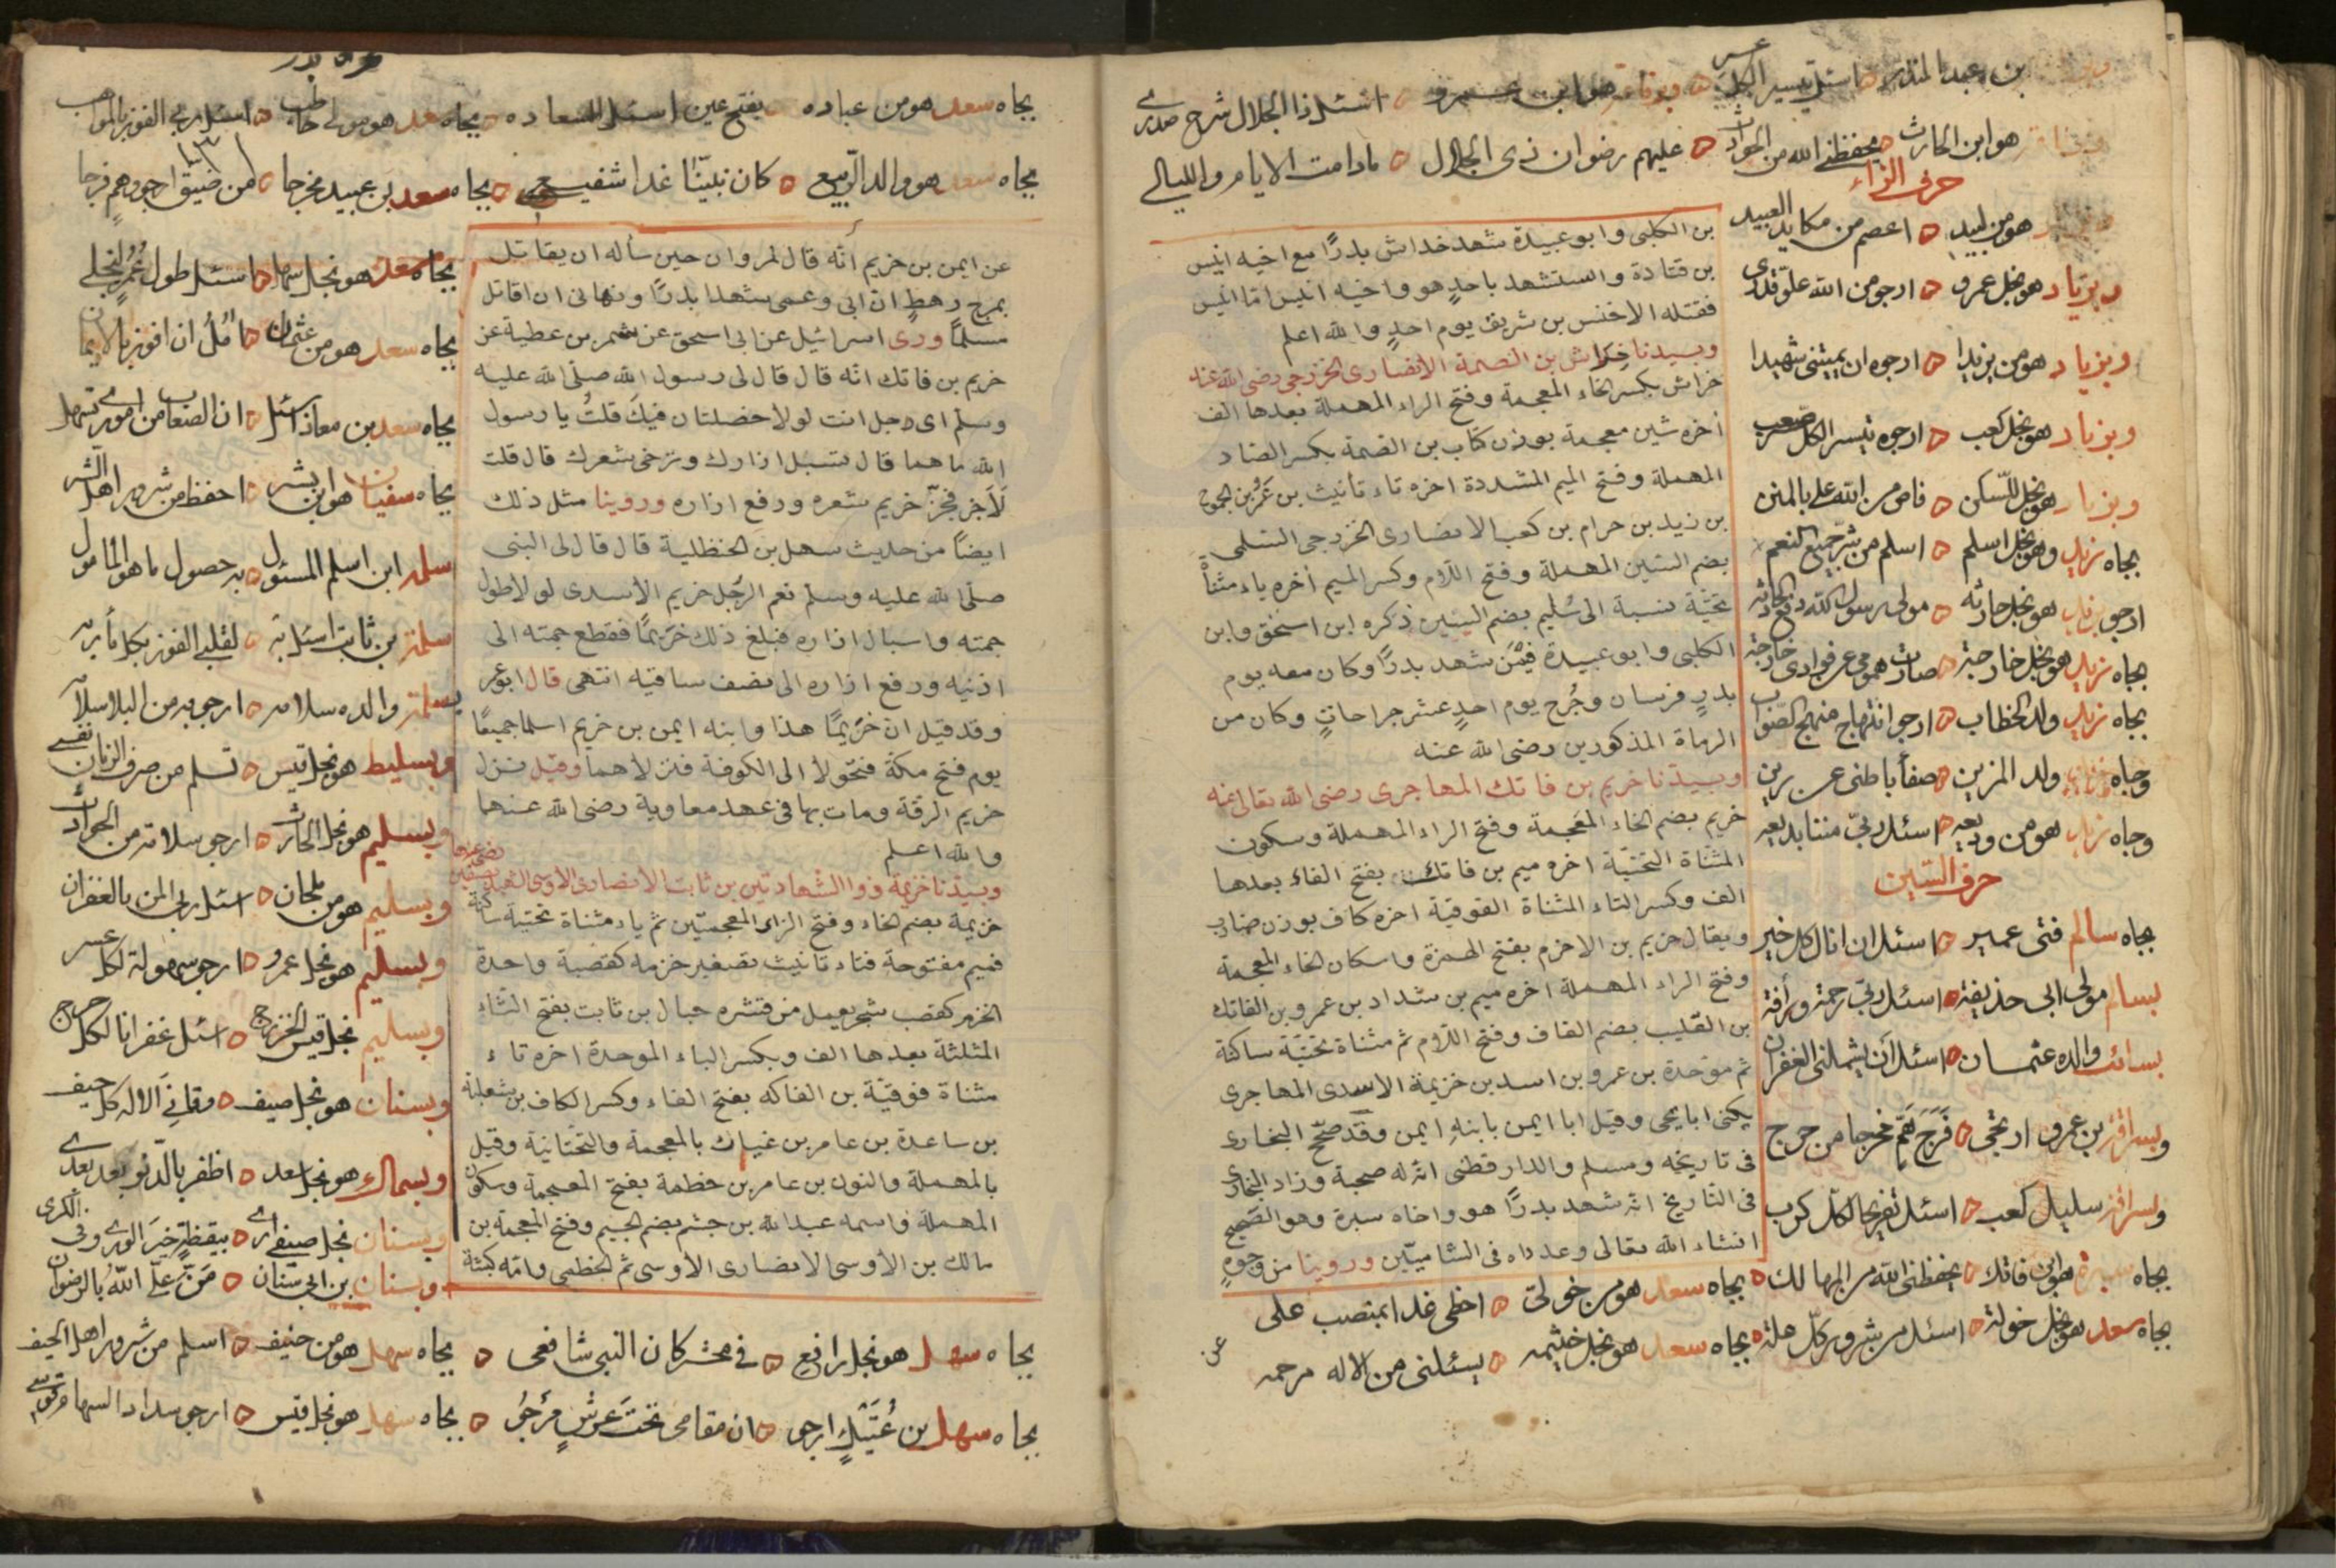 بن عبد المنذر اسئل تيسير الكل عسر وبرفاعة هو ابن عمرو اسئل ذا الجلال شرح صدري
هو ابن الحارث يحفظني الله من الحوادث عليهم رضوان ذي الجلال مادامت الايام والليالي
حرف الزاء
هو من لبيد اعصم من مكايد العبيد
وبزياد هو نجل عمرو ارجو من الله علو قدري
وبزياد هو من يزيدا ارجوه ان يميتني شهيدا
وبزياد هو نجل كعب ارجوه تيسير الكل صعب
هو نجل السكن من الله علي بالمنن
بجاه زيد وهو نجل اسلم اسلم من شر جميع النعم
ارجو بزيد هو نجل حارثه مولى رسول الله دفع الحادثه
بجاه زيد هو نجل خارجة صارت همومي عن فوادي خارجة
بجاه زيد ولد الخطاب ارجو انتهاج منهج الصواب
وجاه ولد المزين صفأ باطني عن رين
وجاه زيد هو من وديعه اسئل ربي مننا بديعه
حرف السين
بجاه سالم فتى عمير اسئل ان انال كل خير
بسالم مولى ابي حذيفة اسئل ربي رحمة ورأفة
بسائب والده عثمان اسئل أن يشملني الغفران
وبسراقة بن عمرو ارتجي فرج هم مخرجا من حرج
ولسراقة سليل كعب اسئل تفريجا لكل كرب
بجاه سبرة هو ابن فاتك يحفظني الله من المهالك بجاه سعد هو من خولي احظى غدا بمنصب علي
بجاه سعد هو نجل خولة اسئل من شرور كل هلة بجاه سعد هو نجل خيثمه يسئلني من الاله مرحمه
بن الكلبي وابو عبيدة شهد خداش بدرًا مع اخيه انيس
بن قتادة واستشهد باحدٍ هو واخيه انيس امّا انيس
فقتله الاخنس بن شريق يوم احدٍ والله اعلم
وبسيدنا خراش بن الصمة الانصاري الخزرجي رضي الله عنه
خراش بكسر الخاء المعجمة وفتح الراء المهملة بعدها الف
اخره شين معجمة بوزن كتاب بن الصمة بكسر الصاد
المهملة وفتح الميم المشددة اخره تاء تأنيث بن عمرو بن الجموح
بن زيد بن حرام بن كعب الانصاري الخزرجي السلمي
بضم السين المهملة وفتح اللام وكسر الميم أخره ياء مثناةٌ
تحتيّة نسبة الى سُليم بضم السين ذكره ابن اسحق وابن
الكلبي وابو عبيدة فيمَن شهد بدرًا وكان معه يوم
بدرٍ فرسان وجُرح يوم احدٍ عشر جراحاتٍ وكان من
الرماة المذكورين رضي الله عنه
وبسيدنا خريم بن فاتك المهاجري رضي الله تعالى عنه
خريم بضم الخاء المعجمة وفتح الراء المهملة وسكون
المثناة التحتيّة اخره ميم بن فاتك بفتح الفاء بعدها
الف وكسر التاء المثناة الفوقية اخره كاف بوزن ضارب
ويقال خريم بن الاخرم بفتح الهمزة واسكان الخاء المعجمة
وفتح الراء المهملة اخره ميم بن شداد بن عمرو بن الفاتك
بن القليب بضم القاف وفتح اللام ثم مثناة تحتيّة ساكنة
ثم موحدة بن عمرو بن اسد بن خزيمة الاسدي المهاجري
يكنى ابا يحيى وقيل ابا ايمن بابنهِ ايمن وقد صحّح البخاري
في تاريخه ومسلم والدارقطني انّ له صحبة وزاد البخاري
في التاريخ انّه شهد بدرًا هو واخاه سبرة وهو الصّحيح
انشاء الله تعالى وعداه في الشاميّين وروينا من وجوهٍ
عن
بجاه سعد هو من عباده بفتح عين اسئل السعاده بجاه سعد هو مولى حاطب اسئل ربي الفوز بالمواهب
بجاه سعد هو والد الربيع كان نبينا غدا شفيعي بجاه سعد بن عبيد مخرجا من ضيق ارجو وهم فرجا
بجاه سعد هو نجل سهل اسئل طول عمر لنجلي
بجاه سعد هو من عثمان اَمُلُ ان افوز بالايمان
بجاه سعد بن معاذ اسئل ان الصعاب من اموري تسهل
بجاه سفيان هو ابن بشر احفظ من شرور اهل الشر
سلمة ابن اسلم المسئول به حصول ما هو المأمول
سلمة بن ثابت اسئل به لقلبي الفوز بكل مأربه
بسلمة والده سلامه ارجو به من البلا سلامه
وبسليط هو نجل قيس تسلم من صرف الزمان نفسي
وبسليم هو نجل الحارث ارجو سلامة من الحوادث
وبسليم هو من ملحان اسئل ربي المن بالغفران
وبسليم هو نجل عمرو ارجو سهولة لكل عسر
وبسليم نجل قيس الخزرج اسئل غفرانا لكل حرج
وبسنان هو نجل صيف وقاني الاله كل حيف
وبسماك هو نجل سعد اظفر بالدنو بعد بعدي
وبسنان نجل صيفي بيقظة خير الورى وفي الكرى
وبسنان بن ابي سنان مَنّ علّ اللّٰهُ بالرضوان
عن ايمن بن خريم أنّه قال لمروان حين سأله ان يقاتل
بمرج رهطٍ انّ ابي وعمى شهدا بدرًا ونهاني ان اقاتل
مسلمًا وروى اسرائيل عن ابي اسحق عن شمر بن عطية عن
خريم بن فاتك انّه قال قال لي رسول الله صلّى الله عليه
وسلم اي رجل انت لولا خصلتان فيكَ قلتُ يا رسول
الله ما هما قال تسبل ازارك وترخى شعرك قال قلت
لا جرم فجزّ خريم شعره ورفع ازاره وروينا مثل ذلك
ايضًا من حديث سهل بن الحنظلية قال قال لي النبي
صلّى الله عليه وسلم نعم الرّجُل خريم الأسدي لولا طول
جمته واسبال ازاره فبلغ ذلك خريمًا فقطع جمته الى
اذنيه ورفع ازاره الى نصف ساقيه انتهى قال ابو عمر
وقد قيل انّ خُريمًا هذا وابنه ايمن بن خريم اسلما جميعًا
يوم فتح مكّة فتحوّلا الى الكوفة فنزلاهما وقيل نزل
خريم الرقة ومات بها في عهد معاوية رضي الله عنهما
والله اعلم
وبسيدنا خزيمة ذو الشهادتين بن ثابت الانصاري الاوسي الشهيد بصفين رضي الله عنها
خزيمة بضم الخاء وفتح الزاى المعجمتين ثم ياء مثناة تحتيّة ساكنة
فميم مفتوحة فتاء تأنيث تصغير خزمه كقصبة واحدة
الخزم كقصب شجر يعمل من قشره حبال بن ثابت بفتح الثاء
المثلثة بعدها الف وبكسر الباء الموحدة اخره تاء
مثناة فوقيّة بن الفاكه بفتح الفاء وكسر الكاف بن ثعلبة
بن ساعدة بن عامر بن غياث بالمعجمة والتحتانية وقيل
بالمهملة والنون بن عامر بن خطمة بفتح المعجمة وسكون
المهملة واسمه عبد الله بن جشم بضم الجيم وفتح المعجمة بن
مالك بن الأوسي الانصاري الأوسي ثم الخطمى وامّه كبشة
بجاه سهل هو نجل رافع في محشر كان النبي شافعي بجاه سهل هو من حنيف اسلم من شرور اهل الحيف
بجاه سهل بن عُتَيْكٍ ارجو ان مقامى تحتَ عرشٍ مَرْجوُ بجاه سهل هو نجل قيس ارجو سداد السهم